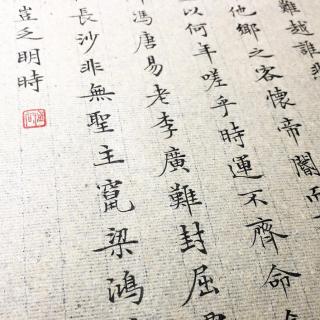 難越誰悲
他鄉之客懷帝閽而
以何年嗟乎時運不齊命
馮唐易老李廣難封屈
長沙非無聖主竄梁鴻
豈乏明時